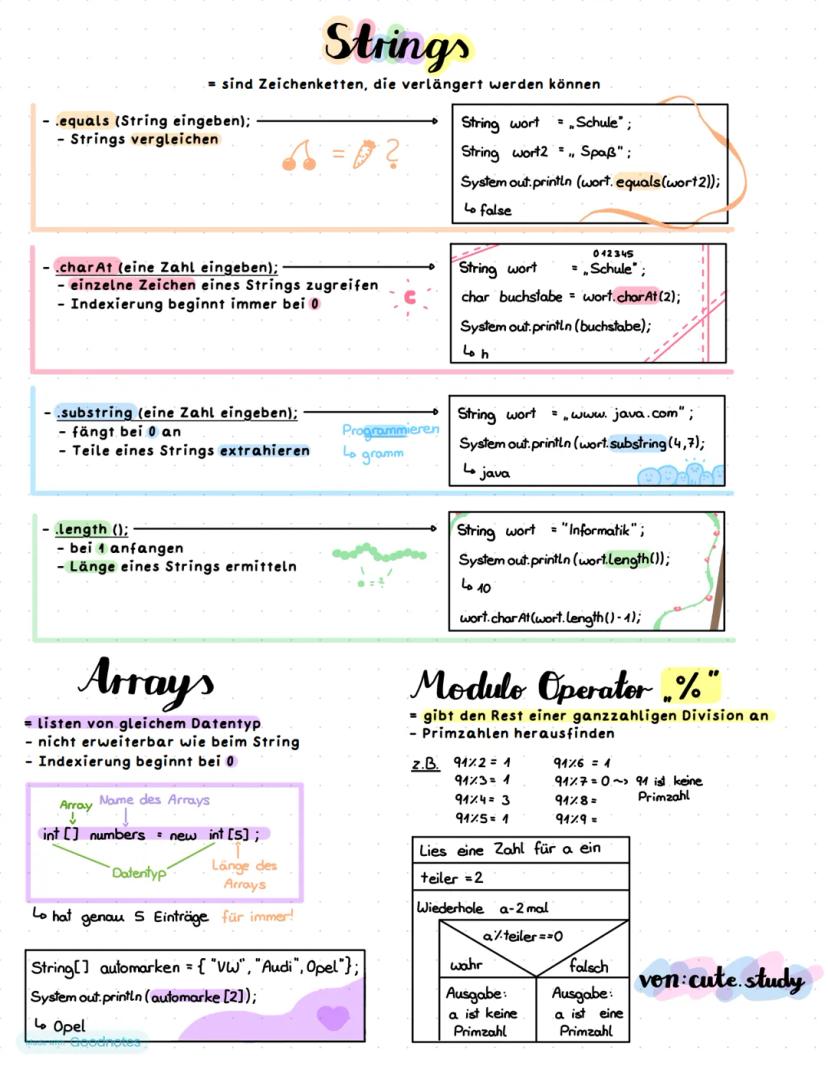 Strings
= sind Zeichenketten, die verlängert werden können
- .equals (String eingeben);
- Strings vergleichen
= ?
String wort = „Schule";
String wort2 = „ Spaß";
System out.println (wort. equals(wort2));
↳ false
- .charAt (eine Zahl eingeben);
- einzelne Zeichen eines Strings zugreifen
- Indexierung beginnt immer bei 0
c
012345
String wort = „Schule";
char buchstabe = wort.charAt(2);
System out.println (buchstabe);
↳ h
- .substring (eine Zahl eingeben);
- fängt bei 0 an
- Teile eines Strings extrahieren
Programmieren
↳ gramm
String wort = „www. java.com";
System out.println (wort.substring(4,7);
↳ java
- .length ();
- bei 1 anfangen
- Länge eines Strings ermitteln
= ?
String wort = "Informatik";
System out.println (wort.length());
↳ 10
wort.charAt(wort.length()-1);
Arrays
= listen von gleichem Datentyp
- nicht erweiterbar wie beim String
- Indexierung beginnt bei 0
Array Name des Arrays
int [] numbers = new int [5];
Datentyp
Länge des
Arrays
↳ hat genau 5 Einträge für immer!
String[] automarken = { "VW", "Audi", Opel"};
System out.println (automarke [2]);
↳ Opel
Made with Goodnotes
Modulo Operator „%"
= gibt den Rest einer ganzzahligen Division an
- Primzahlen herausfinden
z.B. 91%2 = 1 91%6 = 1
91%3 = 1 91%7 = 0 ~> 91 ist keine
Primzahl
91%4 = 3 91%8 =
91%5 = 1 91%9 =
Lies eine Zahl für a ein
teiler = 2
Wiederhole a-2 mal
a%teiler==0
wahr falsch
Ausgabe:
a ist keine
Primzahl
Ausgabe:
a ist eine
Primzahl
von: cute.study